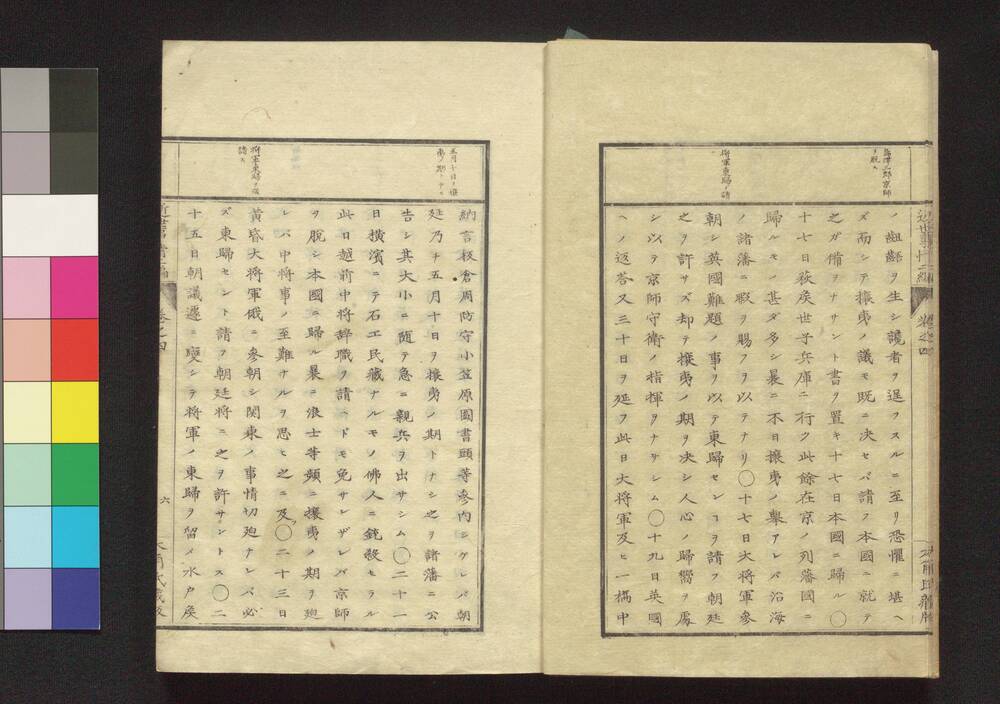 島津三郎京師
ヲ脱ス
將軍東歸ヲ請
ノ齟齬ヲ生シ讒者ヲ逞フスルニ至リ恐懼ニ堪ヘ
ズ而シテ攘夷ノ議モ既ニ決セバ請フ本國ニ就テ
之ガ備ヲナサント書ヲ置キ十七日本國ニ歸ル〇
十七日萩矦世子兵庫ニ行ク此餘在京ノ列藩國ニ
歸ルモノ甚ダ多シ曩ニ不日攘夷ノ擧アレバ沿海
ノ諸藩ニ暇ヲ賜フヲ以テナリ〇十七日大將軍參
朝シ英國難題ノ事ヲ以テ東歸センヿヲ請フ朝廷
之ヲ許サズ却テ攘夷ノ期ヲ決シ人心ノ歸嚮ヲ處
シ以テ京師守衛ノ指揮ヲナサシム〇十九日英國
ヘノ返答又三十日ヲ延フ此日大將軍及ヒ一橋中
五月十日ヲ攘
夷ノ期トナス
將軍東歸ヲ
請フ
納言板倉周防守小笠原圖書頭等參内シケレバ朝
廷乃チ五月十日ヲ攘夷ノ期トナシ之ヲ諸藩ニ公
告シ其大小ニ随テ急ニ親兵ヲ出サシム〇二十一
日横濱ニテ石工民藏ナルモノ佛人ニ銃殺セラル
此日越前中將辞職ヲ請ヘドモ免サレザレバ京師
ヲ脱シ本國ニ歸ル曩ニ浪士等頻ニ攘夷ノ期ヲ廹
レバ中將事ノ至難ナルヲ思ヒ之ニ及〇二十三日
黄昏大將軍俄ニ參朝シ関東ノ事情切廹ナレバ必
ズ東歸セント請フ朝廷將ニ之ヲ許サントス〇二
十五日朝議遽ニ變シテ將軍ノ東歸ヲ留メ水户矦
六